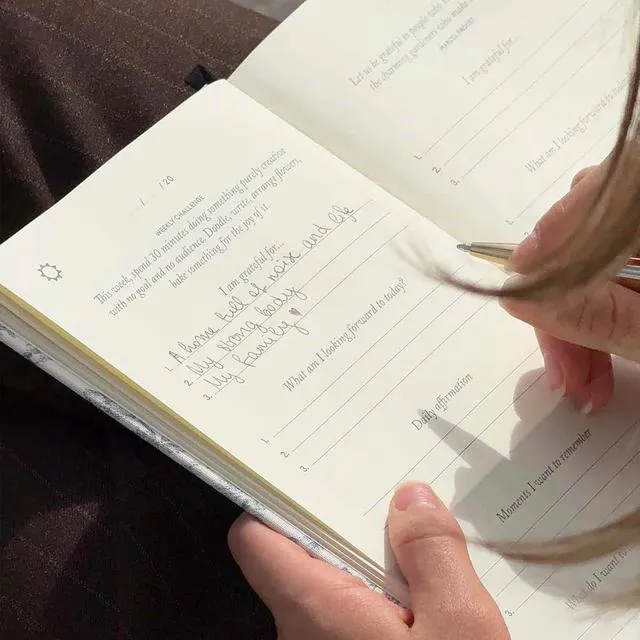 / /20
WEEKLY CHALLENGE
This week, spend 30 minutes doing something purely creative
with no goal and no audience. Doodle, write, arrange flowers,
bake something for the joy of it.
I am grateful for...
1. A home full of noise and life
2. My strong body
3. My family
What am I looking forward to today?
1.
2.
3.
Daily affirmation
Moments I want to remember
3.
Let us be grateful to people
the charming gardeners who make
MARCEL PROUST
I am grateful for...
1.
2.
3.
What am I looking forward to
1.